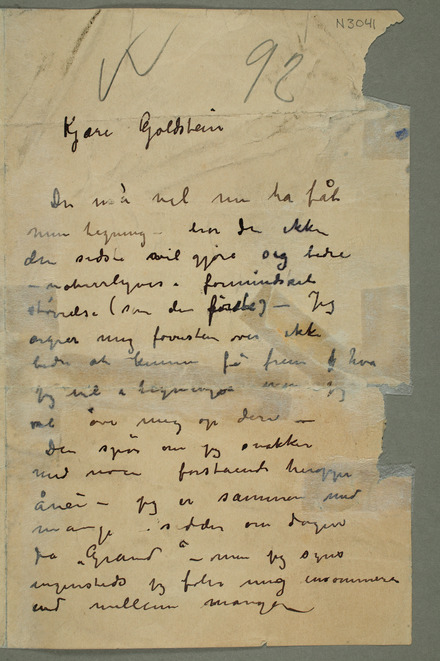 N3041
N 92
Kjære Goldstein
Du må vel nu ha fåt
min tegning – tror du ikke
den sidste vil gjøre sig bedre
– naturligvis i formindsket
størrelse (som den første) – Jeg
ærgrer mig forresten over ikke
bedre at kunne få frem hva
jeg vil i tegninger men jeg
vel øve mig op dertil –
Den spør om jeg snakker
med noen forstående heroppe
– jeg er sammen med
mange sidder om dagen
på „Grand" – men jeg synes
ingensteds jeg føler mig ensommere
end mellem mange